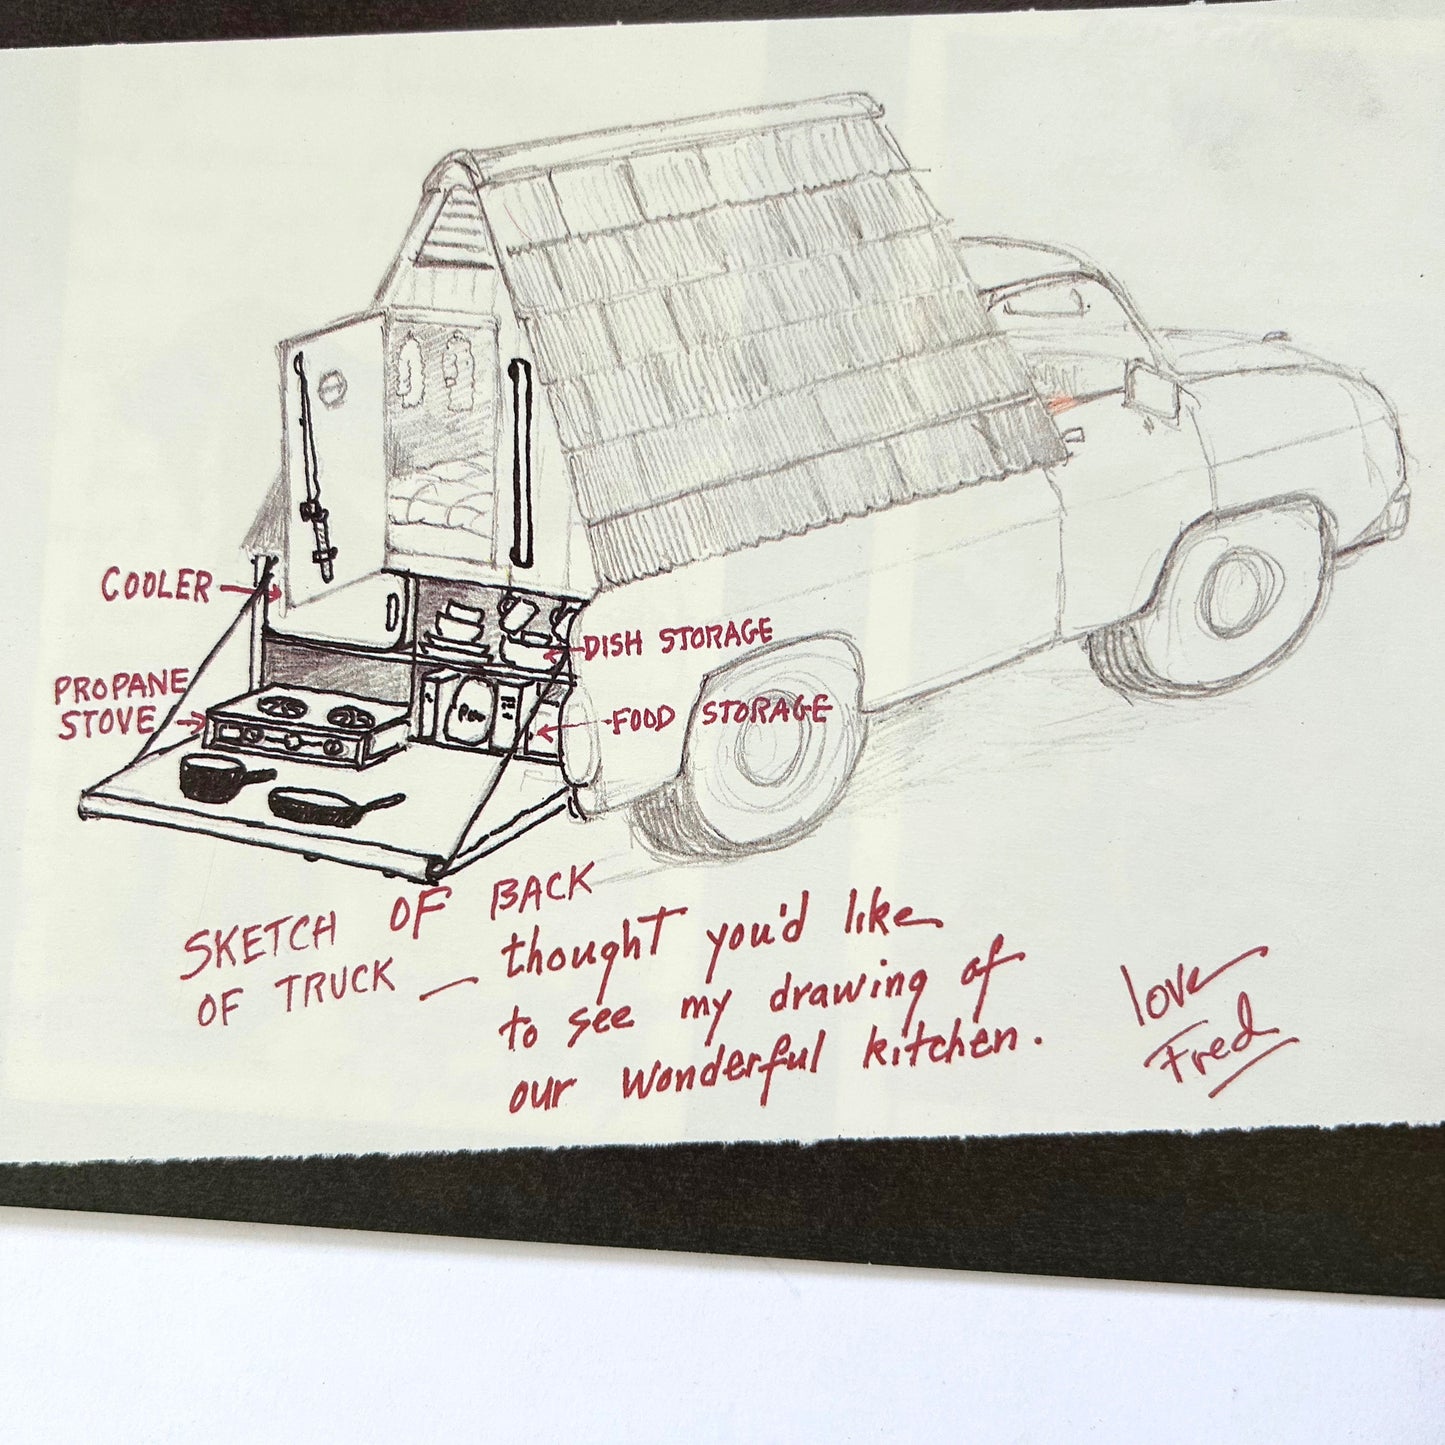 COOLER
PROPANE
STOVE
DISH STORAGE
FOOD STORAGE
SKETCH OF BACK
OF TRUCK — thought you'd like
to see my drawing of
our wonderful kitchen.
love
Fred